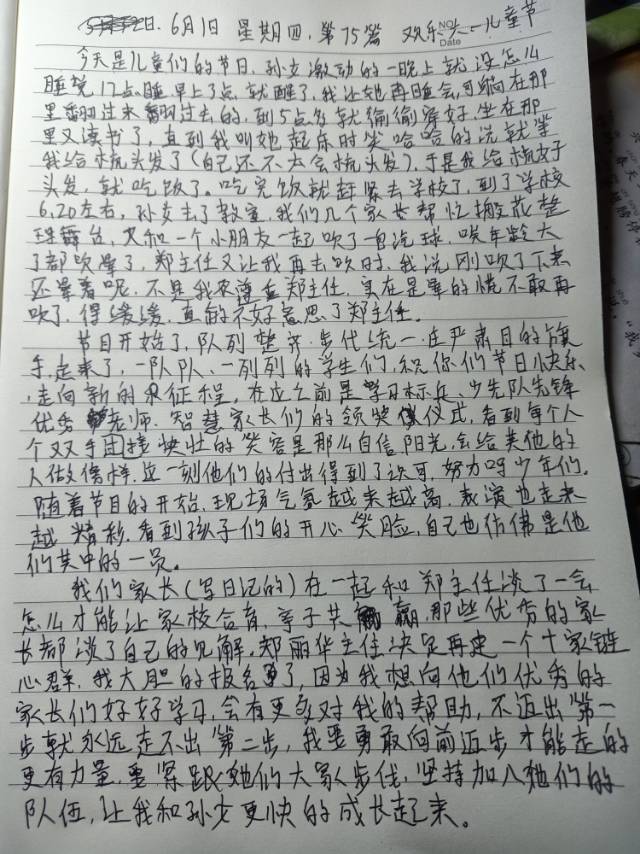 6月1日 星期四,第75篇 欢乐六一儿童节
No.
Date
今天是儿童们的节日,孙女激动的一晚上就没怎么
睡觉12点睡早上3点就醒了,我让她再睡会,可躺在那
里翻过来翻过去的,到5点多就偷偷穿好,坐在那
里又读书了,直到我叫她起床时笑哈哈的说就等
我给梳头发了(自己还不太会梳头发),于是我给梳好
头发,就吃饭了。吃完饭就赶紧去学校了,到了学校
6,20左右,孙女去了教室,我们几个家长帮忙搬花整
理舞台,又和一个小朋友一起吹了一包汽球,唉年龄大
了都吹晕了,郑主任又让我再去吹时,我说刚吹了下来
还晕着呢,不是我不尊重郑主任,实在是晕的慌不敢再
吹了,得缓缓,真的不好意思了郑主任。
节目开始了,队列整齐,步代统一,庄严肃目的旗
手,走来了,一队队、一列列的学生们,祝你们节日快乐
,走向新的长征程,在这之前是学习标兵,少先队先锋
优秀老师,智慧家长们的领奖仪式,看到每个人
个双手接快壮的笑容是那么自信阳光,会给其他的
人做傍样,这一刻他们的付出得到了认可,努力吗少年们,
随着节目的开始,现场气氛越来越高,表演也走来
越精彩,看到孩子们的开心笑脸,自己也仿佛是他
们其中的一员。
我们家长(写日记的)在一起和郑主任谈了一会
怎么才能让家校合育,亭子共赢,那些优秀的家
长都谈了自己的见解,郑丽华主任决定再建一个十家链
心群,我大胆的报名了,因为我想向他们优秀的
家长们好好学习,会有更多对我的帮助,不迈出第一
步就永远走不出第二步,我要勇敢向前迈步才能走的
更有力量,要紧跟她们大家步伐,坚持加入她们的
队伍,让我和孙女更快的成长起来。